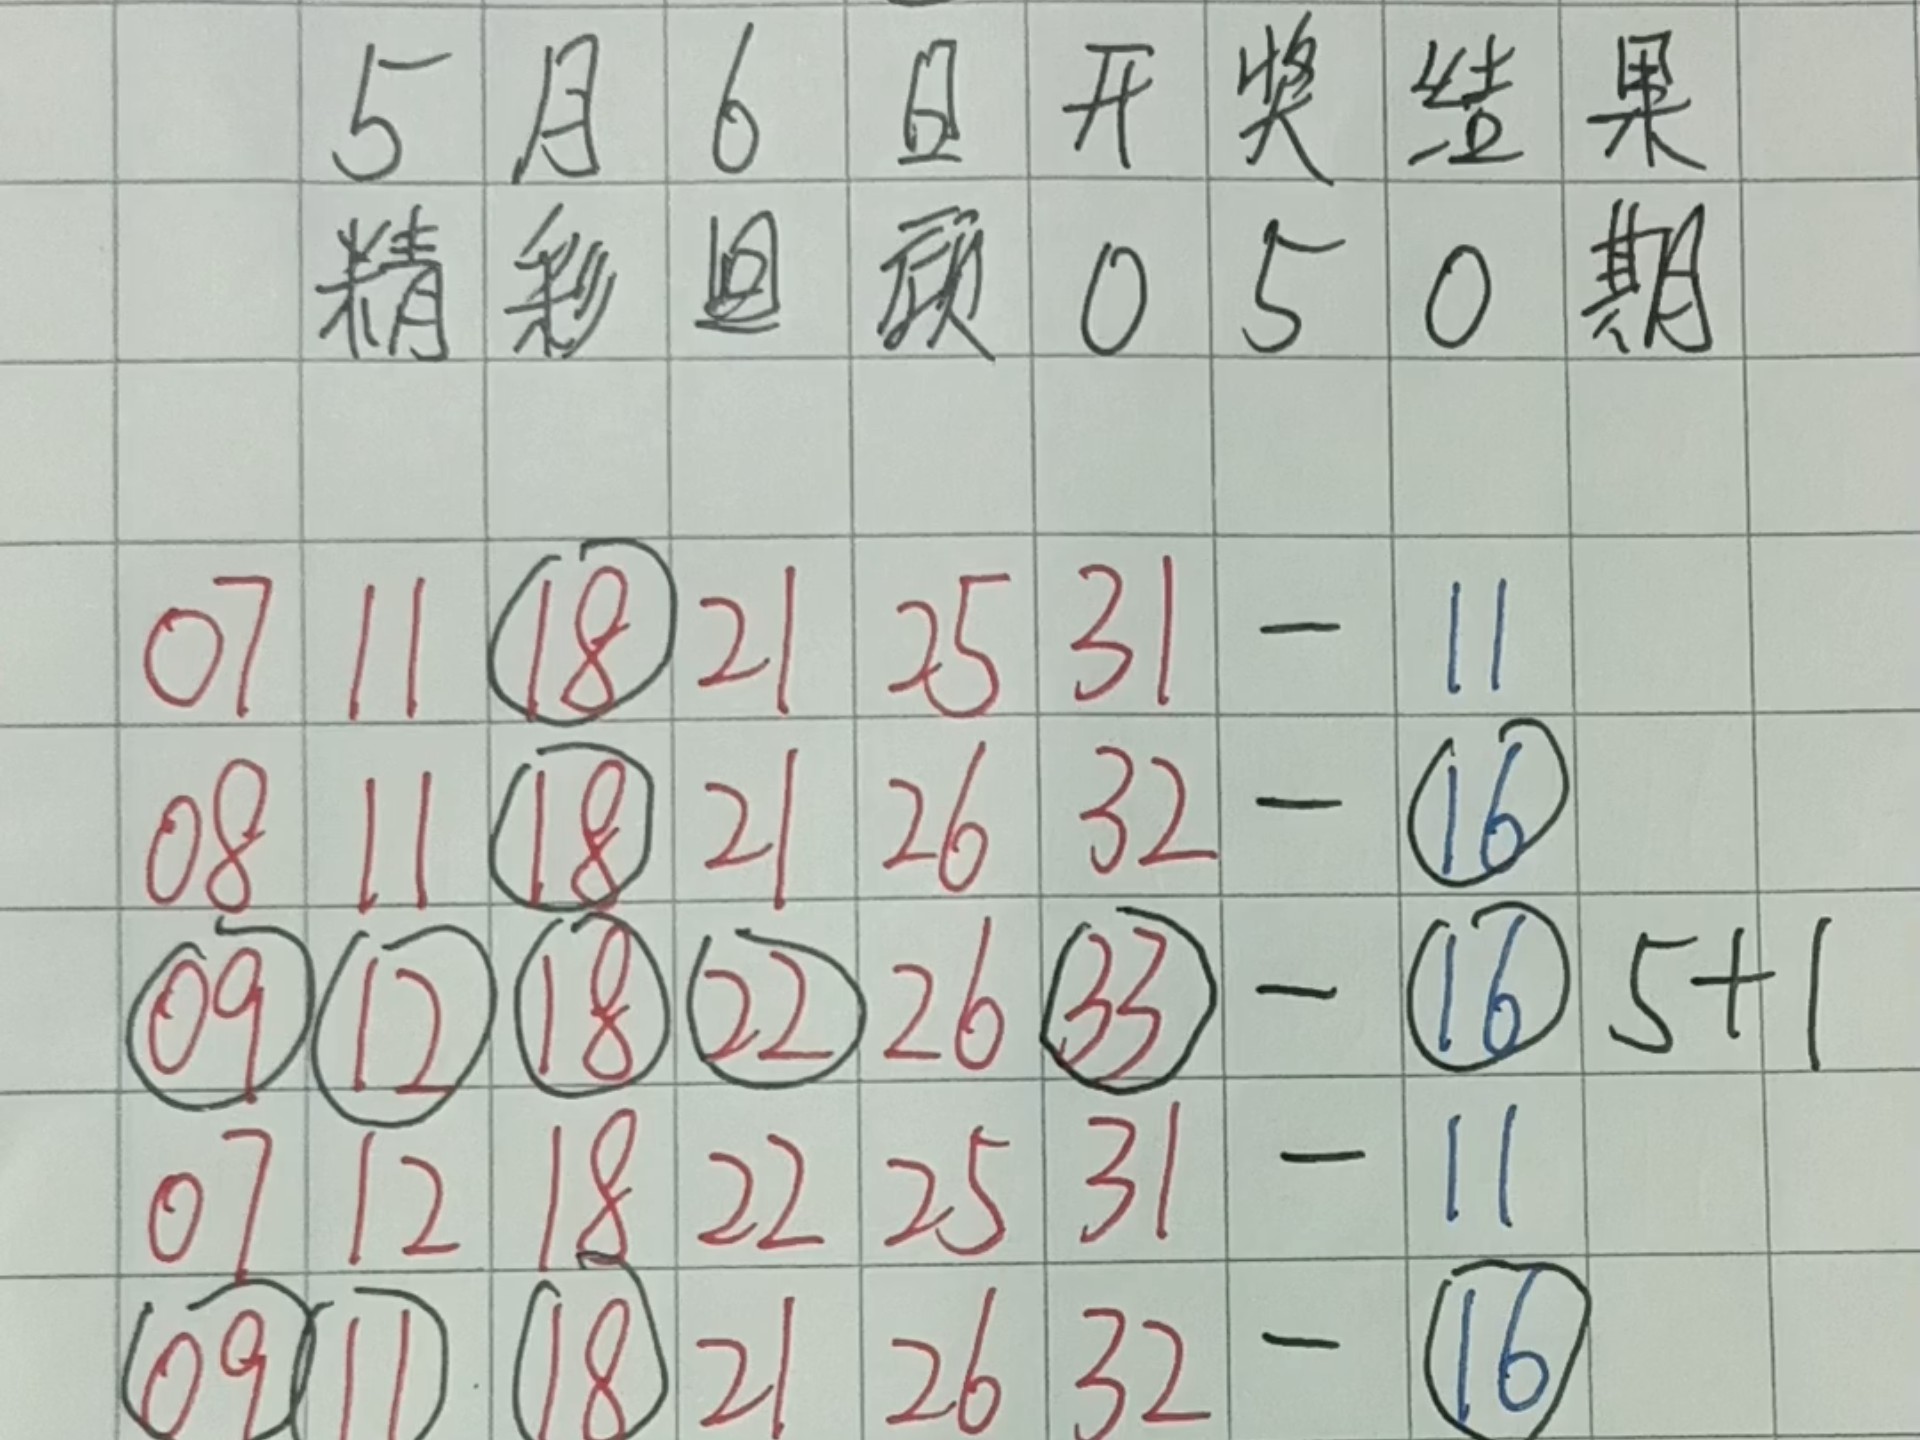 5月6日开奖结果
精彩回顾050期
07 11 18 21 25 31 - 11
08 11 18 21 26 32 - 16
09 12 18 22 26 33 - 16 5+1
07 12 18 22 25 31 - 11
09 11 18 21 26 32 - 16